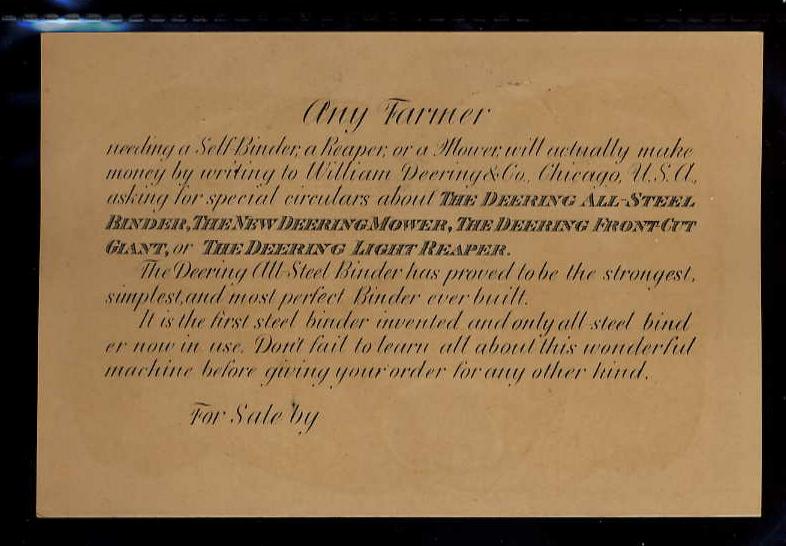 Any Farmer
needing a Self-Binder, a Reaper, or a Mower, will actually make
money by writing to William Deering & Co., Chicago, U.S.A.,
asking for special circulars about THE DEERING ALL-STEEL
BINDER, THE NEW DEERING MOWER, THE DEERING FRONT-CUT
GIANT, or THE DEERING LIGHT REAPER.
The Deering All-Steel Binder has proved to be the strongest,
simplest, and most perfect Binder ever built.
It is the first steel binder invented and only all-steel bind
er now in use. Don't fail to learn all about this wonderful
machine before giving your order for any other kind.
For Sale by